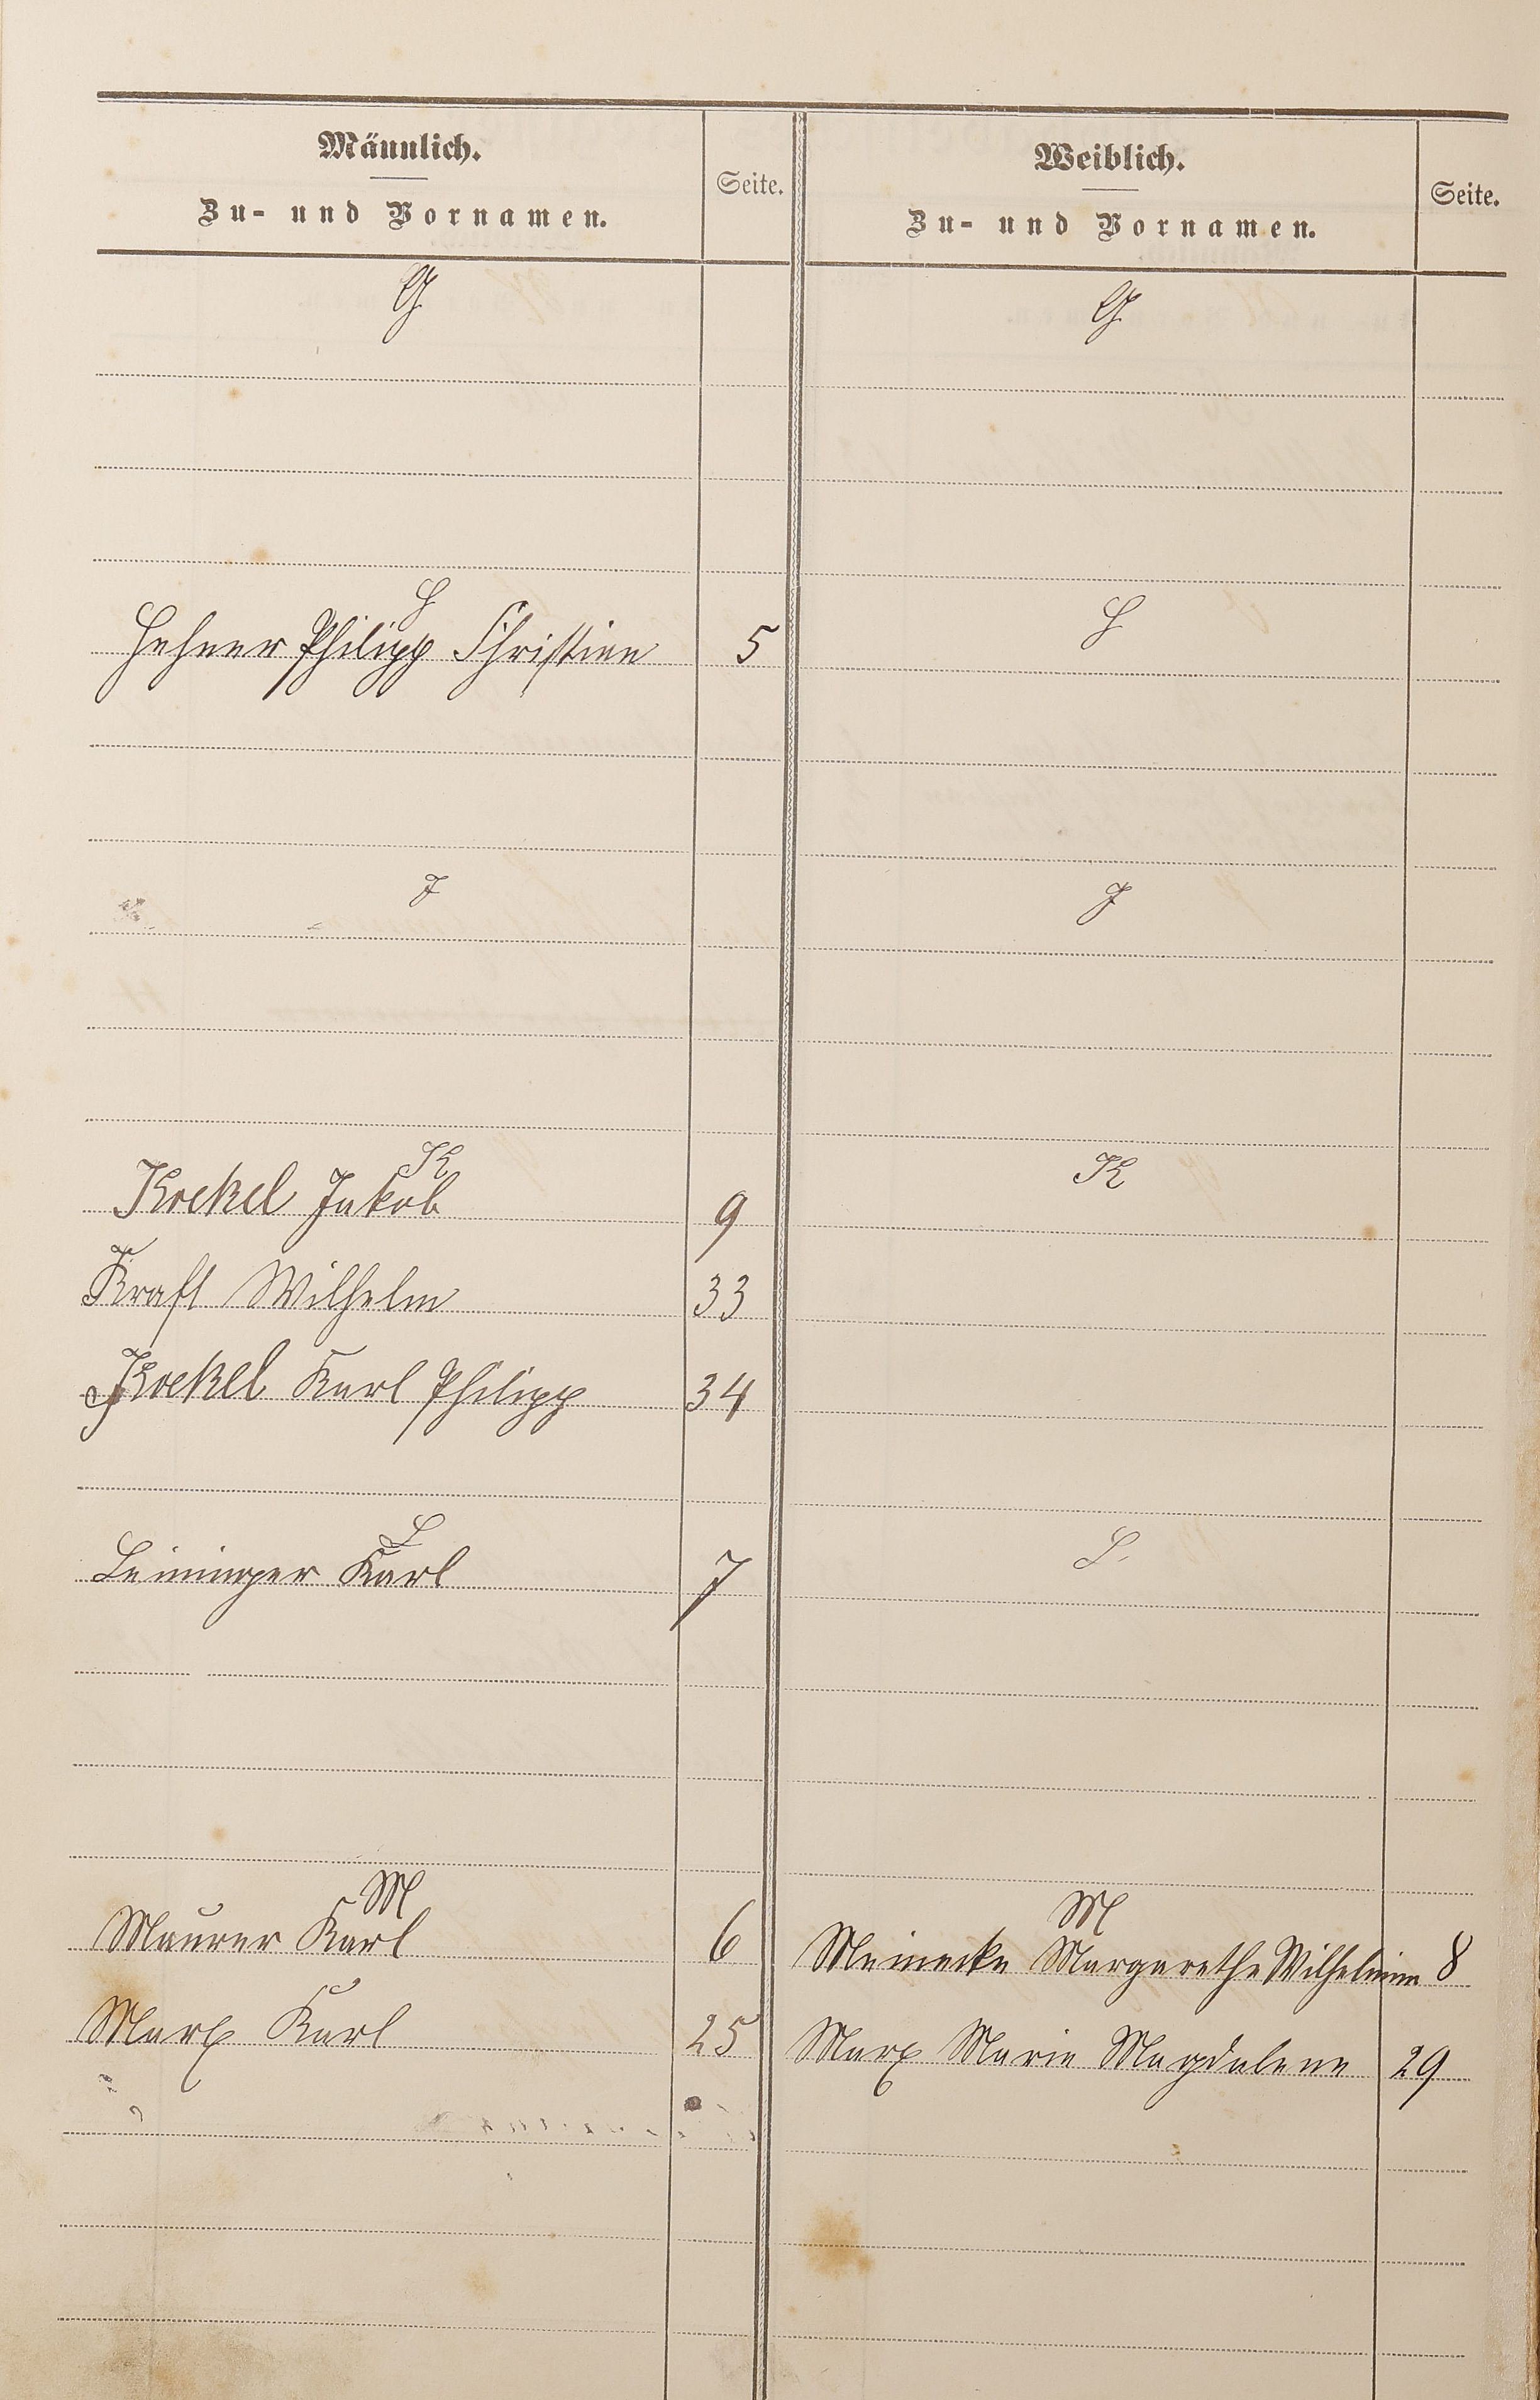 Männlich.
Zu- und Vornamen.
Seite.
Weiblich.
Zu- und Vornamen.
Seite.
G
G
H
H
Hehner Philipp Christian 5
J
J
K
K
Krekel Jakob 9
Kraft Wilhelm 33
Krekel Karl Philipp 34
L
L.
Leininger Karl 7
M
M
Maurer Karl 6
Meinecke Margarethe Wilhelmine 8
Marx Karl 25
Marx Marie Magdalene 29